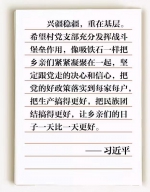 兴疆稳疆，重在基层。
希望村党支部充分发挥战斗
堡垒作用，像吸铁石一样把
乡亲们紧紧凝聚在一起，坚
定跟党走的决心和信心，把
党的好政策落实到每家每户，
把生产搞得更好，把民族团
结搞得更好，让乡亲们的日
子一天比一天更好。
——习近平